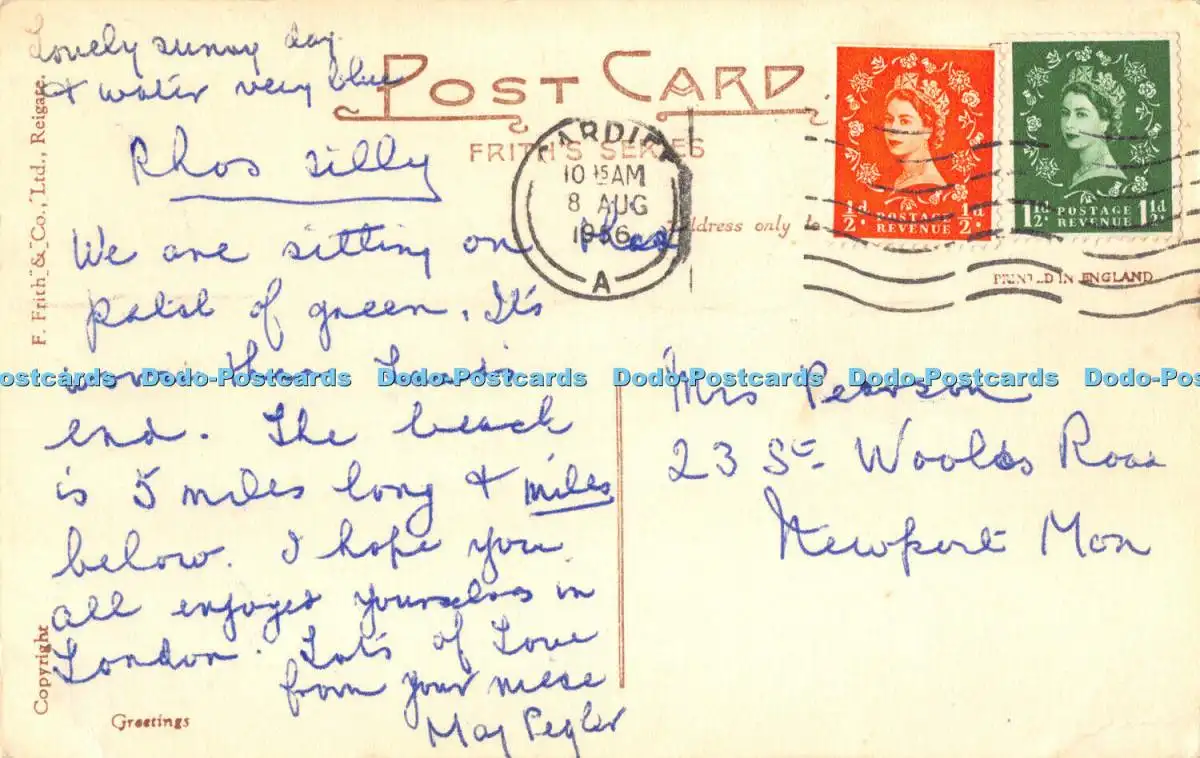 Lovely sunny day
& water very blue
POST CARD
FRITH'S SERIES
Address only
CARDIFF
10 15 AM
8 AUG
1956
A
½d POSTAGE REVENUE ½d
1½d POSTAGE REVENUE 1½d
PRINTED IN ENGLAND
F. Frith & Co., Ltd., Reigate.
Copyright
Greetings
Rhos silly
We are sitting on
of green. It's
end. The beach
is 5 miles long & miles
below. I hope you
all enjoyed yourselves in
London. Lots of Love
from your niece
May Pegler
Mrs Pearson
23 St Woolos Road
Newport Mon
Dodo-Postcards Dodo-Postcards Dodo-Postcards Dodo-Postcards Dodo-Postcards